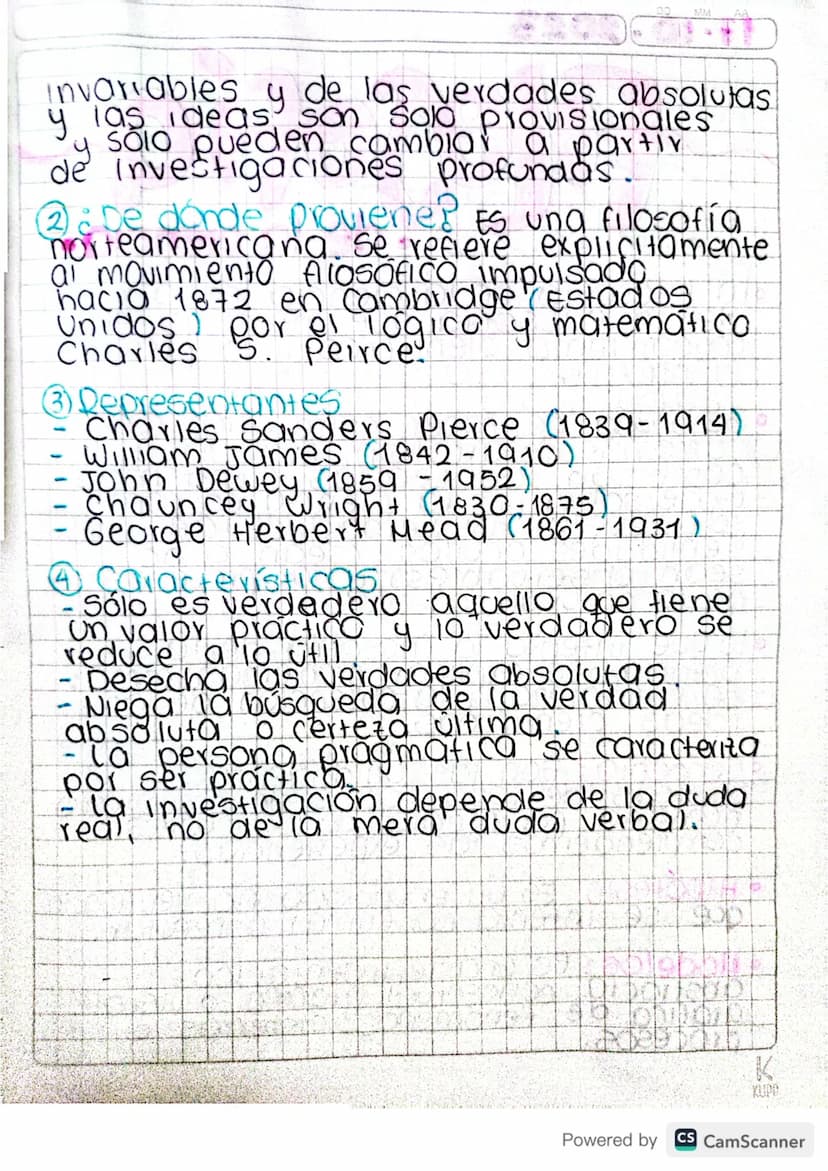 DD MM AA
invariables y de las verdades absolutas
y las ideas son solo provisionales
y sólo pueden cambiar a partir
de investigaciones profundas.
② ¿De dónde proviene? Es una filosofía
norteamericana. Se refiere explícitamente
al movimiento filosófico impulsado
hacia 1872 en Cambridge (Estados
Unidos) por el lógico y matemático
Charles S. Peirce.
③ Representantes
- Charles Sanders Pierce (1839-1914)
- William James (1842-1910)
- John Dewey (1859-1952)
- Chauncey Wright (1830-1875)
- George Herbert Mead (1861-1931)
④ Características
- Sólo es verdadero aquello que tiene
un valor práctico y lo verdadero se
reduce a lo útil.
- Desecha las verdades absolutas.
- Niega la búsqueda de la verdad
absoluta o certeza última.
- La persona pragmática se caracteriza
por ser práctica.
- La investigación depende de la duda
real, no de la mera duda verbal.
K
KUPP
Powered by CS CamScanner